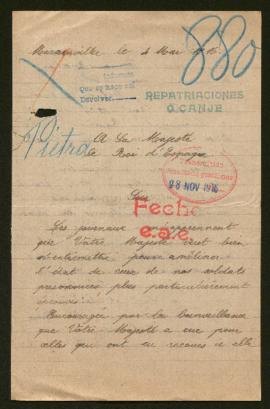 Miramville le 4 Mai 1916.
880
Informe
Que ey necesari
Devolver.
REPATRIACIONES
O CANJE
Pietra
A Sa Majesté
le Roi d'Espagne
Sire
Fecho
e.a.e.
Les journaux apprennent
que Votre Majesté veut bien
s'entremettre pour améliorer
l'état de ceux de nos soldats
prisonniers plus particulièrement
éprouvés.
Encouragée par la bienveillance
que Votre Majesté a eue pour
celles qui ont eu recours à elle